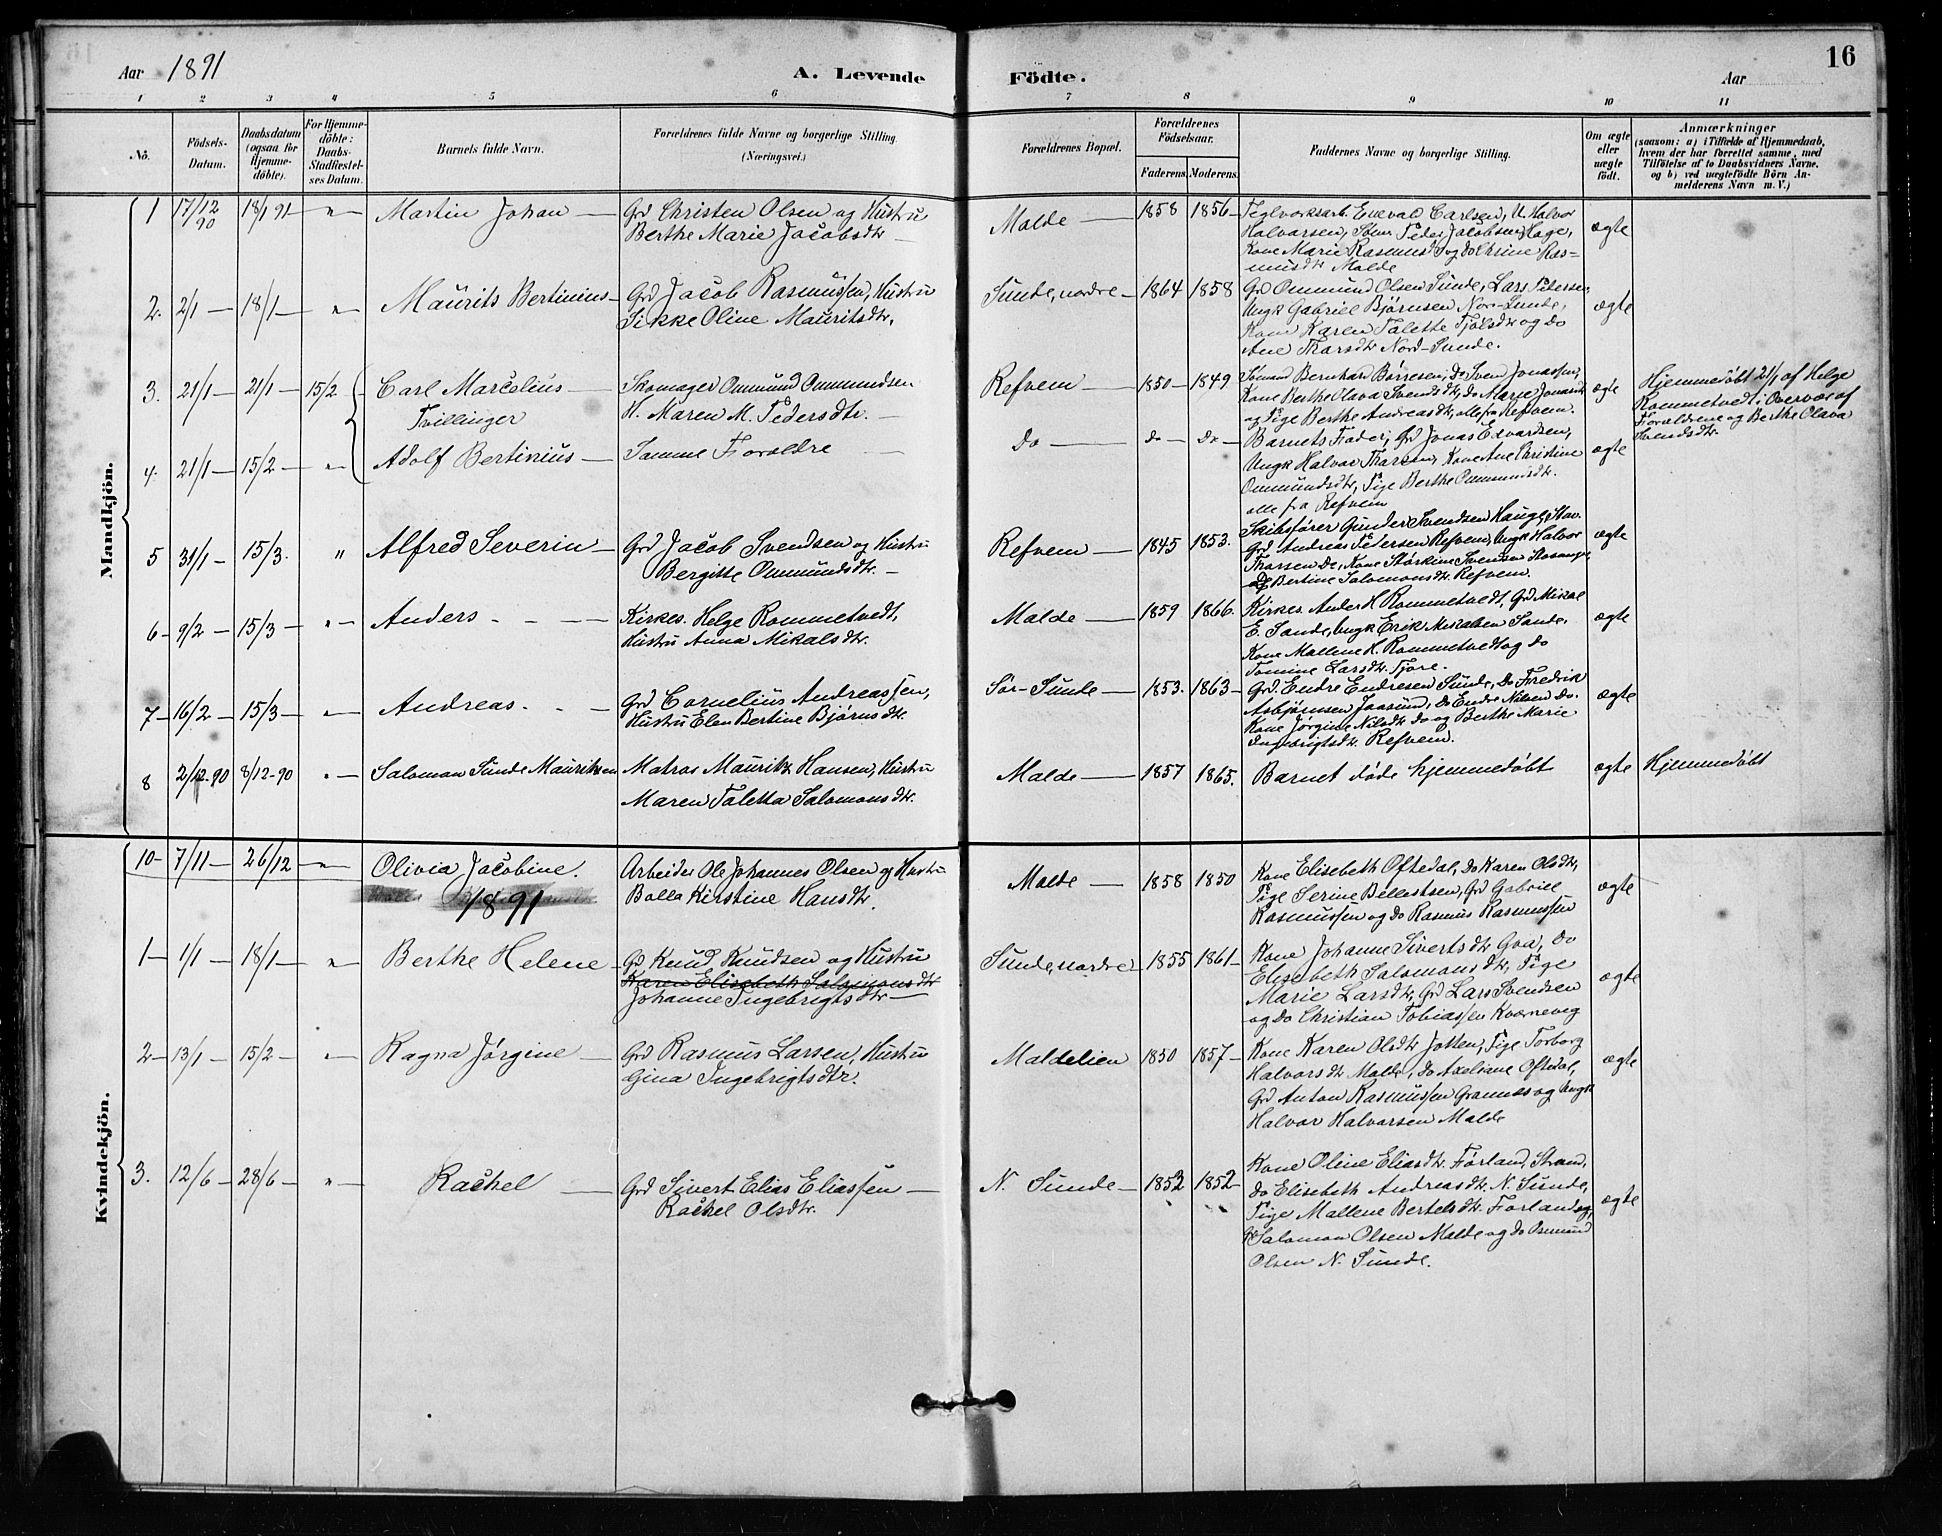 Aar 1891 A. Levende Födte. Aar 16
1 2 3 4 5 6 7 8 9 10 11
No. Födsels-Datum. Daabsdatum (ogsaa for Hjemmedöbte). For Hjemmedöbte: Daabs-Stadfæstelses Datum. Barnets fulde Navn. Forældrenes fulde Navne og borgerlige Stilling. (Næringsvei.) Forældrenes Bopæl. Forældrenes Födselsaar. Faderens. Moderens. Faddernes Navne og borgerlige Stilling. Om ægte eller uægte født. Anmærkninger (saasom: a) i Tilfælde af Hjemmedaab, hvem der har forrettet samme, med Tilföielse af to Daabsvidners Navne, og b) ved uægtefödte Börn Anmelderens Navn m. V.)
Mandkjön.
1 17/12 90 18/1 91 " Martin Johan Grd Christen Olsen og Hustru
Berthe Marie Jacobsdtr
Malde 1858 1856 Teglværksarb. Enevald Carlsen, U. Halvor
Halvorsen, Peder Jacobsen Hage,
Kone Marie Rasmusdtr og do Chrsine Ras-
musdtr Malde
ægte
2. 2/1 18/1 " Maurits Bertinius Grd Jacob Rasmussen, Hustru
Sikke Oline Mauritsdtr.
Sunde, nordre 1864 1858 Grd Ommund Olsen Sunde, Lars Petersen
Ungk Gabriel Bjørnsen Nor-Sunde,
Kone Karen Talette Tjølsdtr og do
Ane Tharsdtr Nord-Sunde.
ægte
3. 21/1 21/1 15/2 Carl Marcelius
Tvillinger
Skomager Ommund Ommundsen
H. Maren M. Pedersdtr.
Refvem 1850 1849 Sømand Bernhard Børresen, do Sven Jonassen,
Kone Berthe Olava Svendsdtr, do Marie Jonasdtr
og Pige Berthe Andreasdtr, alle fra Refvem.
ægte Hjemmedøbt 21/1 af Helge
Rommetvedt i Overvær af
Forældrene og Berthe Olava
Svendsdtr.
4. 21/1 15/2 " Adolf Bertinius Samme Forældre
Do Do Do Barnets Fader, Grd Jonas Edvardsen,
Ungk Halvor Tharsen, Kone Ane Christine
Ommundsdtr, Pige Berthe Ommundsdtr.
alle fra Refvem
ægte
5 31/1 15/3. " Alfred Severin Grd Jacob Svendsen og Hustru
Bergitte Ommundsdtr.
Refvem 1845 1853. Skibsfører Gunder Svendsen Hauge, Stav.
Grd Andreas Pedersen Refvem, Ungk Halvor
Tharsen Do, Kone Størkine Svendsen Stavanger
og Bertine Salomonsdtr. Refvem.
ægte
6 9/2 15/3 " Anders Kirkes. Helge Rommetvedt,
Hustru Anna Mikalsdtr.
Malde 1859 1866. Kirkes. Anders H Rommetvedt, Grd Mikal
E. Sande, Ungk Erik Mikalsen Sande,
Kone Mallene H. Rommetvedt og do
Tomine Larsdtr. Tjore.
ægte
7 16/2 15/3 " Andreas. Grd Cornelius Andreassen,
Hustru Elen Bertine Bjørnsdtr.
Sør-Sunde 1853. 1863 Grd. Endre Endresen Sunde, Do Fredrik
Asbjørnsen Jaasund, Do Endre Nilsen Do.
Kone Jørgine Nilsdtr do og Berthe Marie
Ingebrigtsdtr. Refvem.
ægte
8 2/12-90 8/12-90 " Salomon Sunde Mauritzen Matros Mauritz Hansen, Hustru
Maren Taletta Salomonsdtr.
Malde 1857 1865. Barnet døde hjemmedøbt ægte Hjemmedøbt
Kvindekjön.
10 7/11 26/12 " Olivia Jacobine. Arbeider Ole Johannes Olsen og Hustru
Bolla Kirstine Hansdtr.
Malde 1858 1850 Kone Elisebeth Oftedal, do Karen Olsdtr,
Pige Serine Bellestsen, Grd Gabriel
Rasmussen og do Rasmus Rasmussen
ægte
1891
1 1/1 18/1 " Berthe Helene Grd Knud Knudsen og Hustru
Karen Elisebeth Salomonsdtr
Johanne Ingebrigtsdtr
Sunde, nordre 1855 1861 Kone Johanne Sivertsdtr Goa, Do
Elisebeth Salomonsdtr, Pige
Marie Larsdtr, Grd Lars Svendsen
og do Christian Tobiassen Kvernevig
ægte
2 13/1 15/2 " Ragna Jørgine Grd Rasmus Larsen, Hustru
Gina Ingebrigtsdtr.
Maldelien 1850 1857 Kone Karen Olsdtr Jotten, Pige Torborg
Halvorsdtr Malde, do Axeliane Oftedal,
Grd Anton Rasmussen Grannes og Ungk
Halvor Halvorsen Malde
ægte
3. 12/6 28/6 " Rachel Grd Sivert Elias Eliassen
Rachel Olsdtr.
N. Sunde 1852 1852 Kone Oline Eliasdtr. Førland, Strand,
do Elisebeth Andreasdtr. N. Sunde,
Pige Mallene Bertelsdtr. Førland og,
Grd Salomon Olsen Malde og do Osmund
Olsen N. Sunde.
ægte